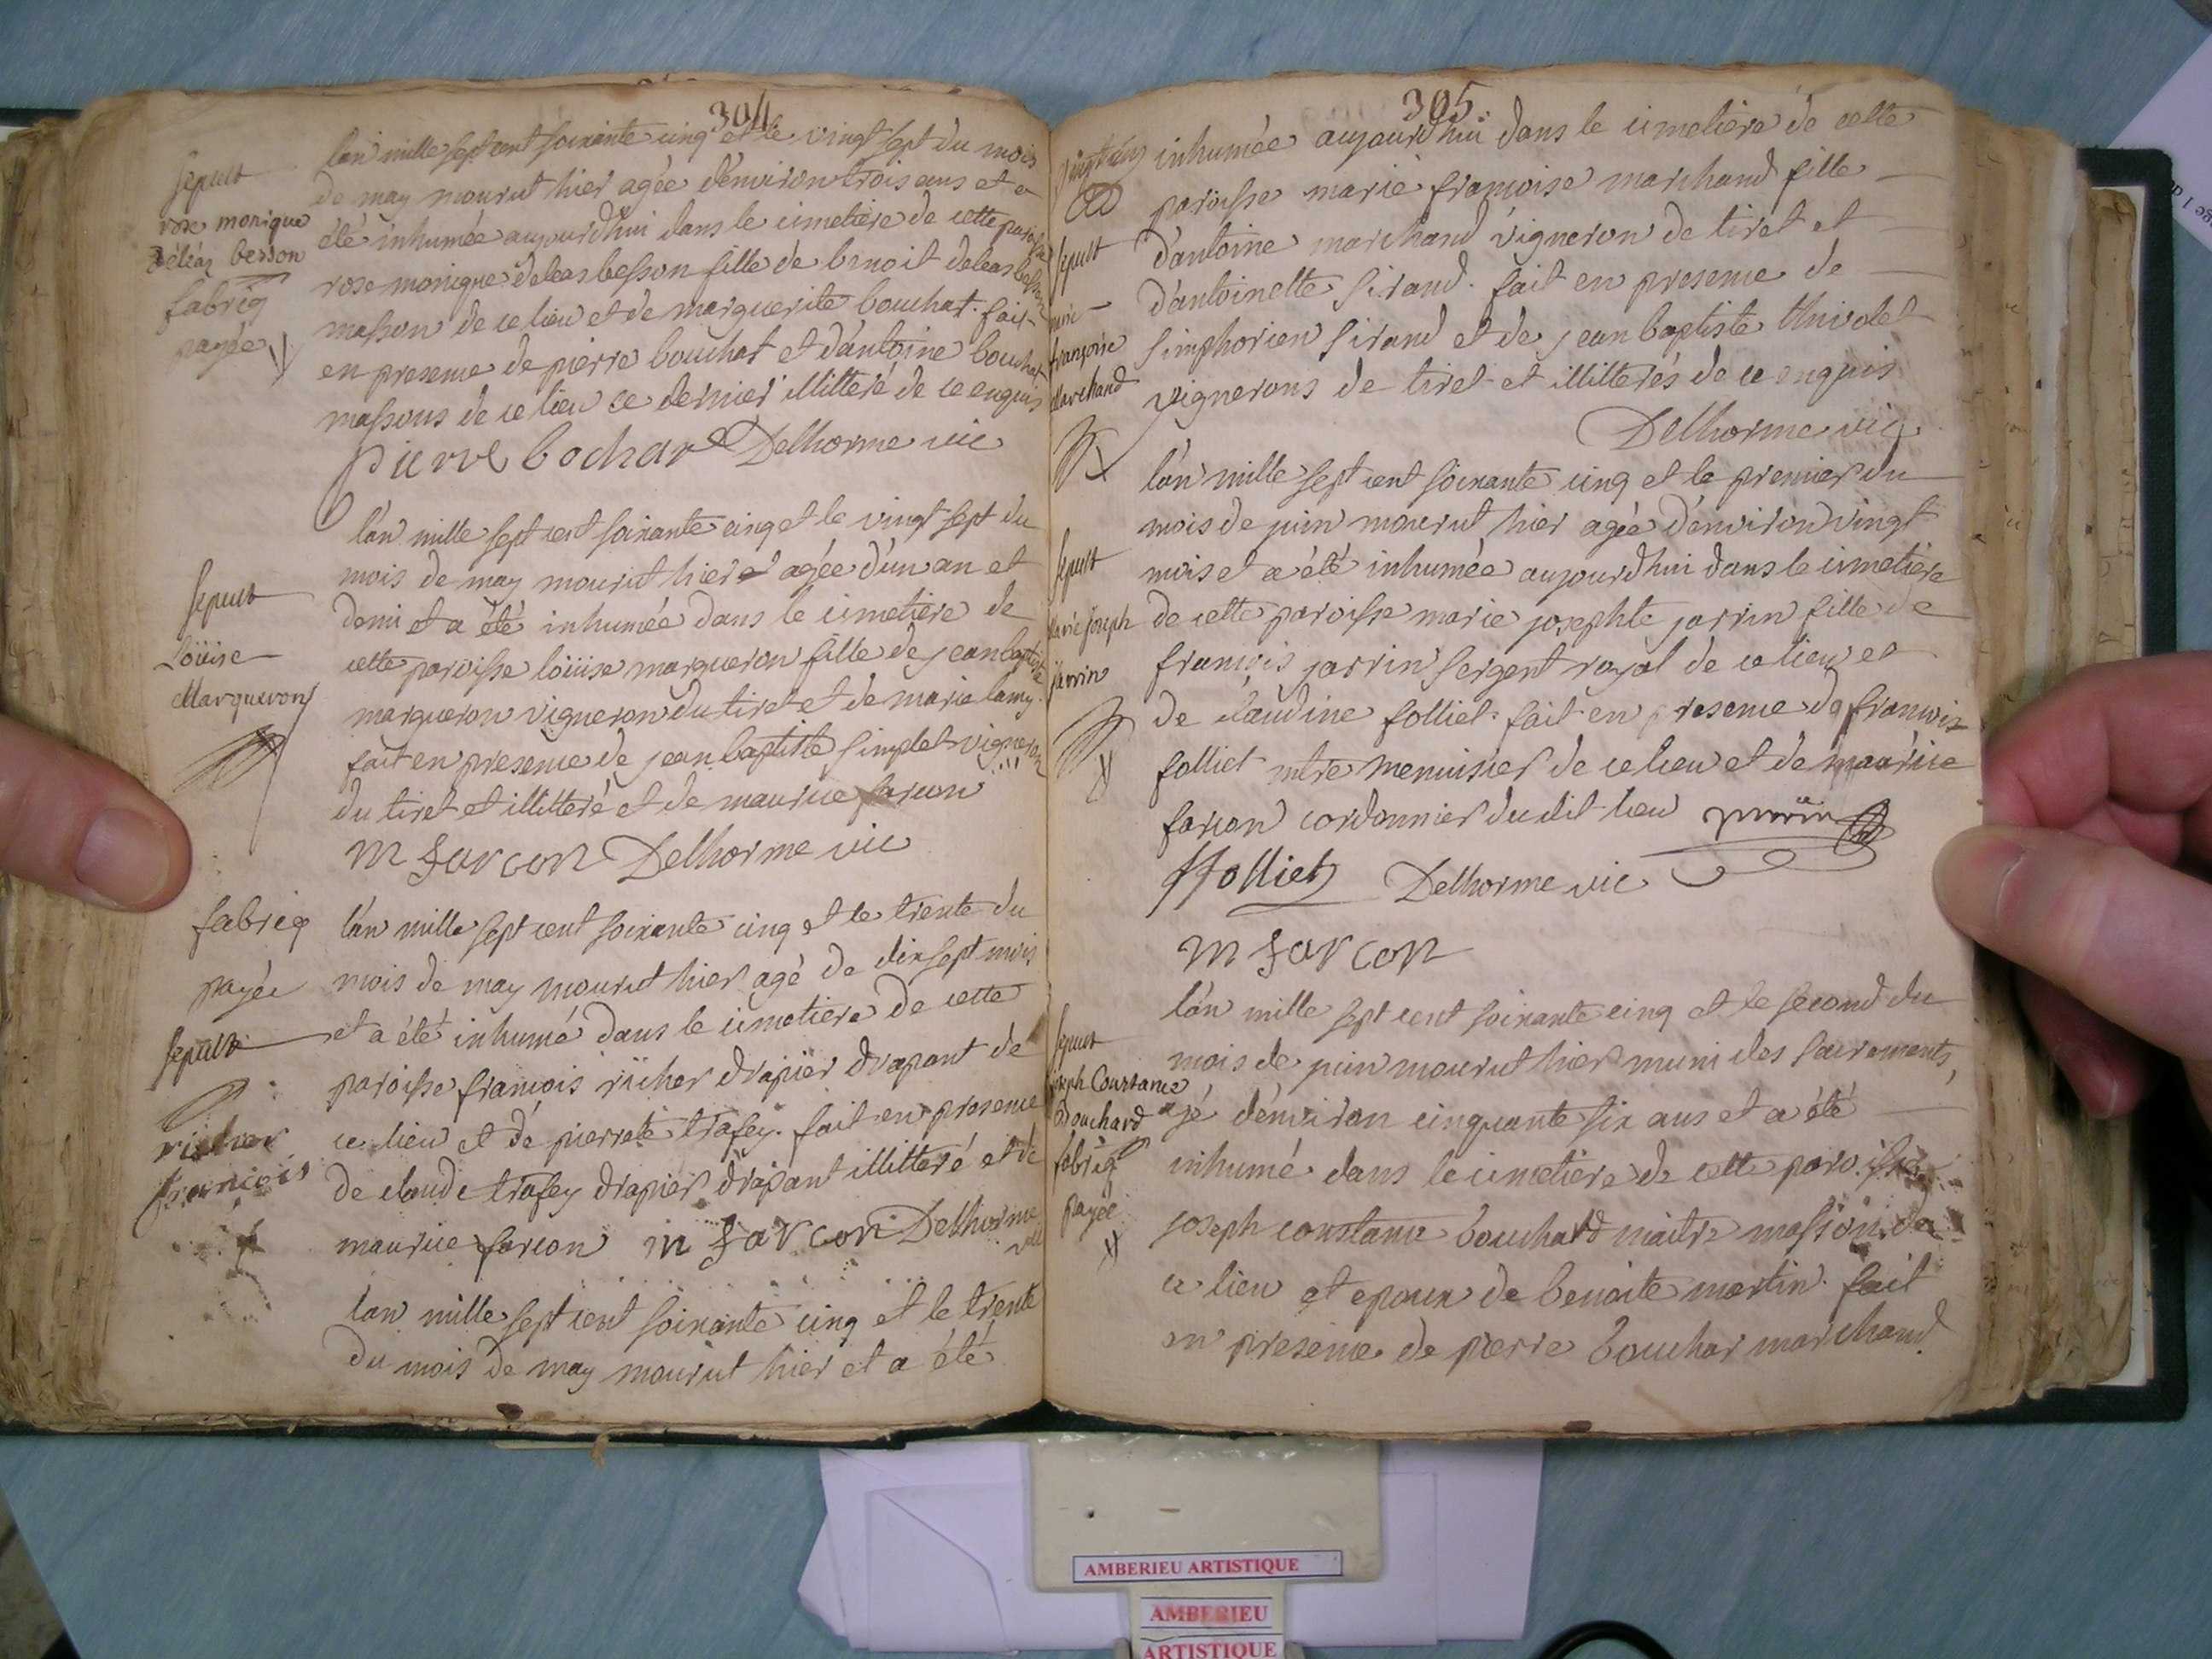 304
Sepult
rose monique
deléaz besson
fabriq
payée
lan mille sept cent soixante cinq et le vingt sept du mois
de may mourut hier agée d'environ trois ans et a
été inhumée aujourdhui dans le cimetière de cette paroisse
rose monique deleas besson fille de benoit deleas besson
masson de ce lieu et de marguerite bouchar. fait
en presence de pierre bouchar et d'antoine bouchar
massons de ce lieu ce dernier illitteré de ce enquis
pierre bochar Delhorme vic
Sepult
Loüise
Marqueron
l'an mille sept cent soixante cinq et le vingt sept du
mois de may mourut hier agée d'un an et
demi et a été inhumée dans le cimetiere de
cette paroisse loüise margueron fille de jean baptiste
margueron vigneron du tiret et de marie lamy.
fait en presence de jean baptiste simplet vigneron
du tiret et illitteré et de maurice farcon
m farcon Delhorme vic
fabriq
payée
Sepult
richer
francois
l'an mille sept cent soixante cinq et le trente du
mois de may mourut hier agé de dix sept mois
et a été inhumé dans le cimetiere de cette
paroisse francois richer drapier drapant de
ce lieu et de pierrete trafey. fait en presence
de claude trafey drapier drapant illitteré et de
maurice farcon m farcon Delhorme
vic
lan mille sept cent soixante cinq et le trente
du mois de may mourut hier et a été
305
Sepult
marie
françoise
Marchand
inhumée aujourdhui dans le cimetière de cette
paroisse marie francoise marchand fille
d'antoine marchand vigneron de tiret et
d'antoinette sirand. fait en presence de
simphorien sirand et de jean baptiste thivolet
vignerons de tiret et illitterés de ce enquis
Delhorme vic
Sepult
Marie Joseph
jarrin
l'an mille sept cent soixante cinq et le premier du
mois de juin mourut hier agée d'environ vingt
mois et a été inhumée aujourdhui dans le cimetiere
de cette paroisse marie josephte jarrin fille de
francois jarrin sergent royal de ce lieu et
de claudine folliet. fait en presence de francois
folliet mtre menuisier de ce lieu et de maurice
farcon cordonnier dudit lieu jarrin
ffolliet Delhorme vic
m farcon
Sepult
joseph Constance
Bouchard
fabriq
payée
l'an mille sept cent soixante cinq et le second du
mois de juin mourut hier muni des sacrements,
agé d'environ cinquante six ans et a été
inhumé dans le cimetière de cette paroisse
joseph constance bouchard maitre masson de
ce lieu et epoux de benoite martin. fait
en presence de pierre bouchar marchand
AMBERIEU ARTISTIQUE
AMBERIEU
ARTISTIQUE